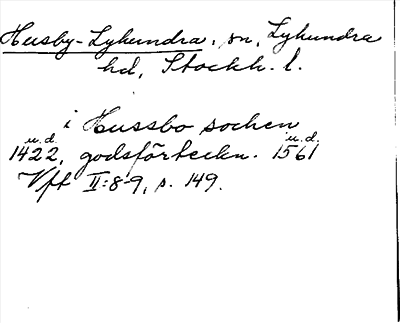 Husby-Lyhundra, sn, Lyhundra
hd, Stockh. l.
i Hussbo sochen
u.d. u.d.
1422, godsförteckn. 1561
Vft II:8-9, s. 149.